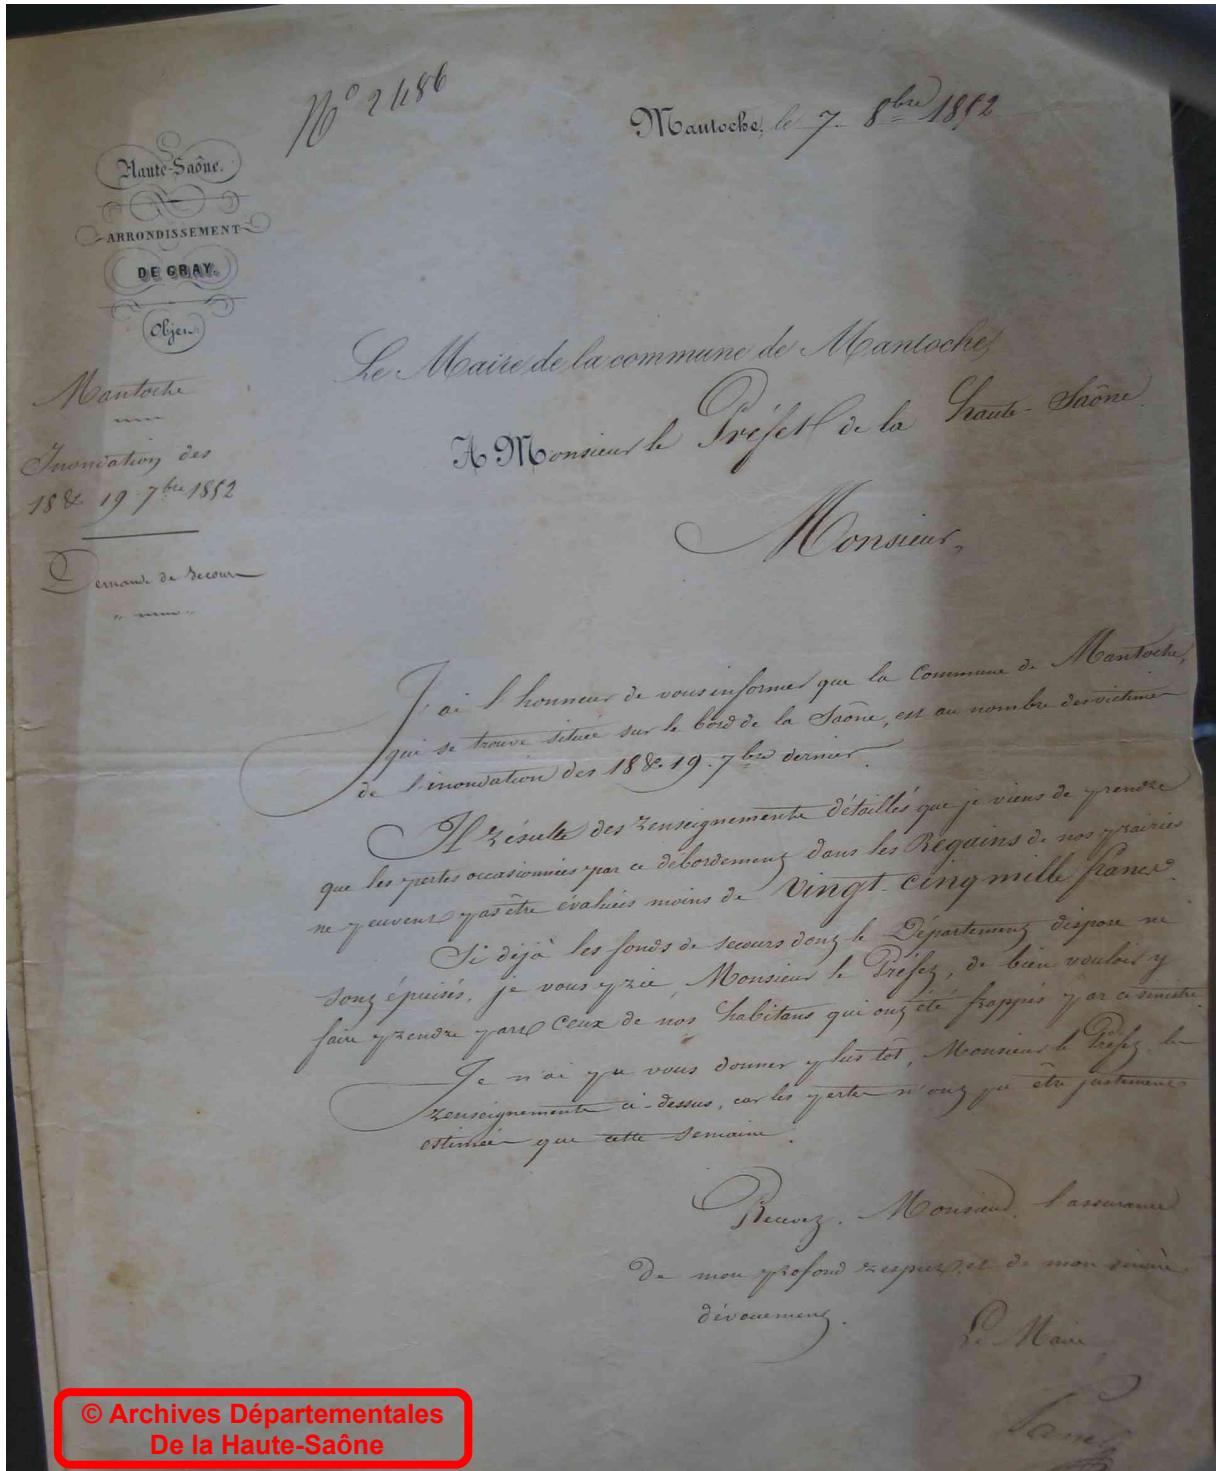 N° 2486
Mantoche, le 7. 8bre 1852
Haute-Saône.
ARRONDISSEMENT
DE GRAY.
Objet:
Mantoche
Inondation des
18 & 19 7bre 1852
Demande de secours
Le Maire de la commune de Mantoche,
A Monsieur le Préfet de la haute-Saône.
Monsieur,
J'ai l'honneur de vous informer que la Commune de Mantoche,
qui se trouve située sur le bord de la Saône, est au nombre des victimes
de l'inondation des 18 & 19. 7bre dernier.
Il résulte des renseignements détaillés que je viens de prendre
que les pertes occasionnées par ce débordement dans les Regains de nos prairies
ne peuvent pas être évaluées moins de vingt-cinq mille francs.
Si déjà les fonds de secours dont le Département dispose ne
sont épuisés, je vous prie, Monsieur le Préfet, de bien vouloir y
faire prendre part ceux de nos habitans qui ont été frappés par ce sinistre.
Je n'ai pu vous donner plus tôt, Monsieur le Préfet, les
renseignements ci-dessus, car les pertes n'ont pu être justement
estimées que cette semaine.
Recevez, Monsieur, l'assurance
de mon profond respect et de mon sincère
dévouement.
Le Maire
© Archives Départementales
De la Haute-Saône